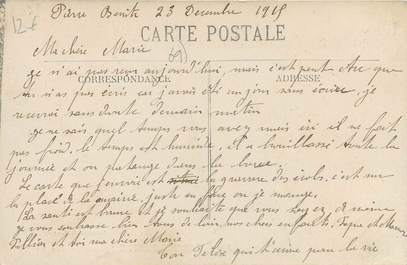 12 €
Pierre Benite 23 Decembre 1915
CARTE POSTALE
Ma chere Marie
(69)
CORRESPONDANCE
ADRESSE
je n'ai pas reçu aujourd'hui, mais c'est peut etre que
tu n'as pas ecris car j'avais été un jour sans écrire, je
recevrai sans doute demain matin
je ne sais quel temps vous avez mais ici il ne fait
pas froid, le temps est humide, il a brouillassé toute la
journée et on patauge dans la boue.
La carte que j'envoi est la guerre des écoles, c'est sur
la place de la mairie, juste en face ou je mange.
La santé est bonne et je souhaite que vous soyez de meme
je vous embrasse bien tous de loin, nos chers enfants,
et toi ma chere Marie
Ton Felix qui t'aime pour la vie